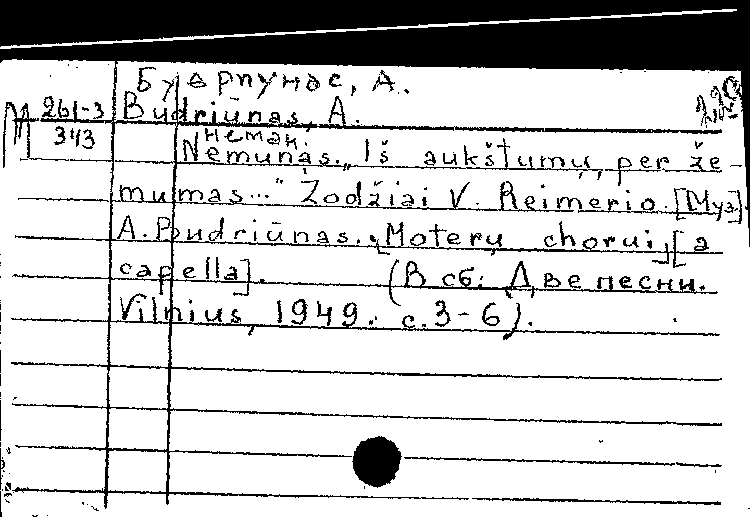 Будрпунас, А.
М 261-3 Budriūnas, A.
343
неман.
Nemunas. „Iš aukštumų, per že-
mumas..." Žodžiai V. Reimerio. [Муз].
A. Budriūnas. „Moterų chorui„ [a
capella]. (В сб: Две песни.
Vilnius, 1949. с.3-6).